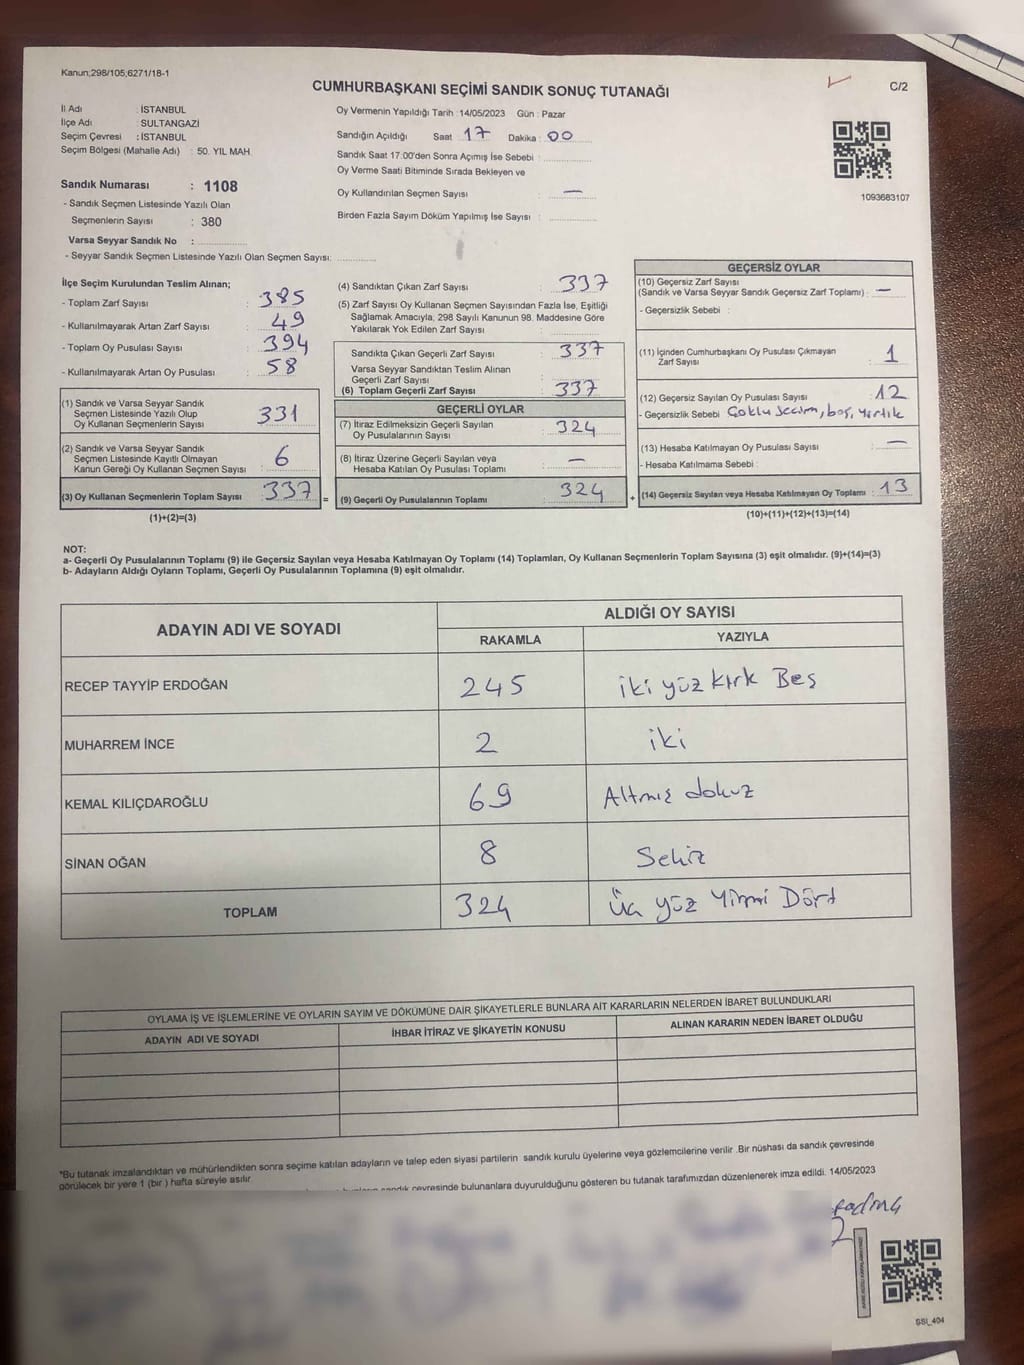 Kanun;298/105;6271/18-1
CUMHURBAŞKANI SEÇİMİ SANDIK SONUÇ TUTANAĞI
C/2
İl Adı : İSTANBUL
İlçe Adı : SULTANGAZİ
Seçim Çevresi : İSTANBUL
Seçim Bölgesi (Mahalle Adı) : 50. YIL MAH.
Sandık Numarası : 1108
- Sandık Seçmen Listesinde Yazılı Olan
Seçmenlerin Sayısı : 380
Varsa Seyyar Sandık No :
- Seyyar Sandık Seçmen Listesinde Yazılı Olan Seçmen Sayısı:
Oy Vermenin Yapıldığı Tarih : 14/05/2023 Gün : Pazar
Sandığın Açıldığı Saat : 17 Dakika : 00
Sandık Saat 17:00'den Sonra Açımış İse Sebebi :
Oy Verme Saati Bitiminde Sırada Bekleyen ve
Oy Kullandırılan Seçmen Sayısı : —
Birden Fazla Sayım Döküm Yapılmış İse Sayısı :
1093683107
İlçe Seçim Kurulundan Teslim Alınan;
- Toplam Zarf Sayısı : 385
- Kullanılmayarak Artan Zarf Sayısı : 49
- Toplam Oy Pusulası Sayısı : 394
- Kullanılmayarak Artan Oy Pusulası : 58
(1) Sandık ve Varsa Seyyar Sandık
Seçmen Listesinde Yazılı Olup
Oy Kullanan Seçmenlerin Sayısı : 331
(2) Sandık ve Varsa Seyyar Sandık
Seçmen Listesinde Kayıtlı Olmayan
Kanun Gereği Oy Kullanan Seçmen Sayısı : 6
(3) Oy Kullanan Seçmenlerin Toplam Sayısı : 337 =
(1)+(2)=(3)
(4) Sandıktan Çıkan Zarf Sayısı : 337
(5) Zarf Sayısı Oy Kullanan Seçmen Sayısından Fazla İse, Eşitliği
Sağlamak Amacıyla, 298 Sayılı Kanunun 98. Maddesine Göre
Yakılarak Yok Edilen Zarf Sayısı :
Sandıkta Çıkan Geçerli Zarf Sayısı : 337
Varsa Seyyar Sandıktan Teslim Alınan
Geçerli Zarf Sayısı :
(6) Toplam Geçerli Zarf Sayısı : 337
GEÇERLİ OYLAR
(7) İtiraz Edilmeksizin Geçerli Sayılan
Oy Pusulalarının Sayısı : 324
(8) İtiraz Üzerine Geçerli Sayılan veya
Hesaba Katılan Oy Pusulası Toplamı : —
(9) Geçerli Oy Pusulalarının Toplamı : 324 +
GEÇERSİZ OYLAR
(10) Geçersiz Zarf Sayısı
(Sandık ve Varsa Seyyar Sandık Geçersiz Zarf Toplamı) : —
- Geçersizlik Sebebi :
(11) İçinden Cumhurbaşkanı Oy Pusulası Çıkmayan
Zarf Sayısı : 1
(12) Geçersiz Sayılan Oy Pusulası Sayısı : 12
- Geçersizlik Sebebi Çoklu Secim, boş, yırtık
(13) Hesaba Katılmayan Oy Pusulası Sayısı : —
- Hesaba Katılmama Sebebi :
(14) Geçersiz Sayılan veya Hesaba Katılmayan Oy Toplamı : 13
(10)+(11)+(12)+(13)=(14)
NOT:
a- Geçerli Oy Pusulalarının Toplamı (9) ile Geçersiz Sayılan veya Hesaba Katılmayan Oy Toplamı (14) Toplamları, Oy Kullanan Seçmenlerin Toplam Sayısına (3) eşit olmalıdır. (9)+(14)=(3)
b- Adayların Aldığı Oyların Toplamı, Geçerli Oy Pusulalarının Toplamına (9) eşit olmalıdır.
ADAYIN ADI VE SOYADI
ALDIĞI OY SAYISI
RAKAMLA YAZIYLA
RECEP TAYYİP ERDOĞAN 245 iki yüz kırk Beş
MUHARREM İNCE 2 iki
KEMAL KILIÇDAROĞLU 69 Altmış dokuz
SİNAN OĞAN 8 Sekiz
TOPLAM 324 Üç yüz Yirmi Dört
OYLAMA İŞ VE İŞLEMLERİNE VE OYLARIN SAYIM VE DÖKÜMÜNE DAİR ŞİKAYETLERLE BUNLARA AİT KARARLARIN NELERDEN İBARET BULUNDUKLARI
ADAYIN ADI VE SOYADI İHBAR İTİRAZ VE ŞİKAYETİN KONUSU ALINAN KARARIN NEDEN İBARET OLDUĞU
*Bu tutanak imzalandıktan ve mühürlendikten sonra seçime katılan adayların ve talep eden siyasi partilerin sandık kurulu üyelerine veya gözlemcilerine verilir .Bir nüshası da sandık çevresinde
görülecek bir yere 1 (bir ) hafta süreyle asılır.
sandık çevresinde bulunanlara duyurulduğunu gösteren bu tutanak tarafımızdan düzenlenerek imza edildi. 14/05/2023
SSI_404